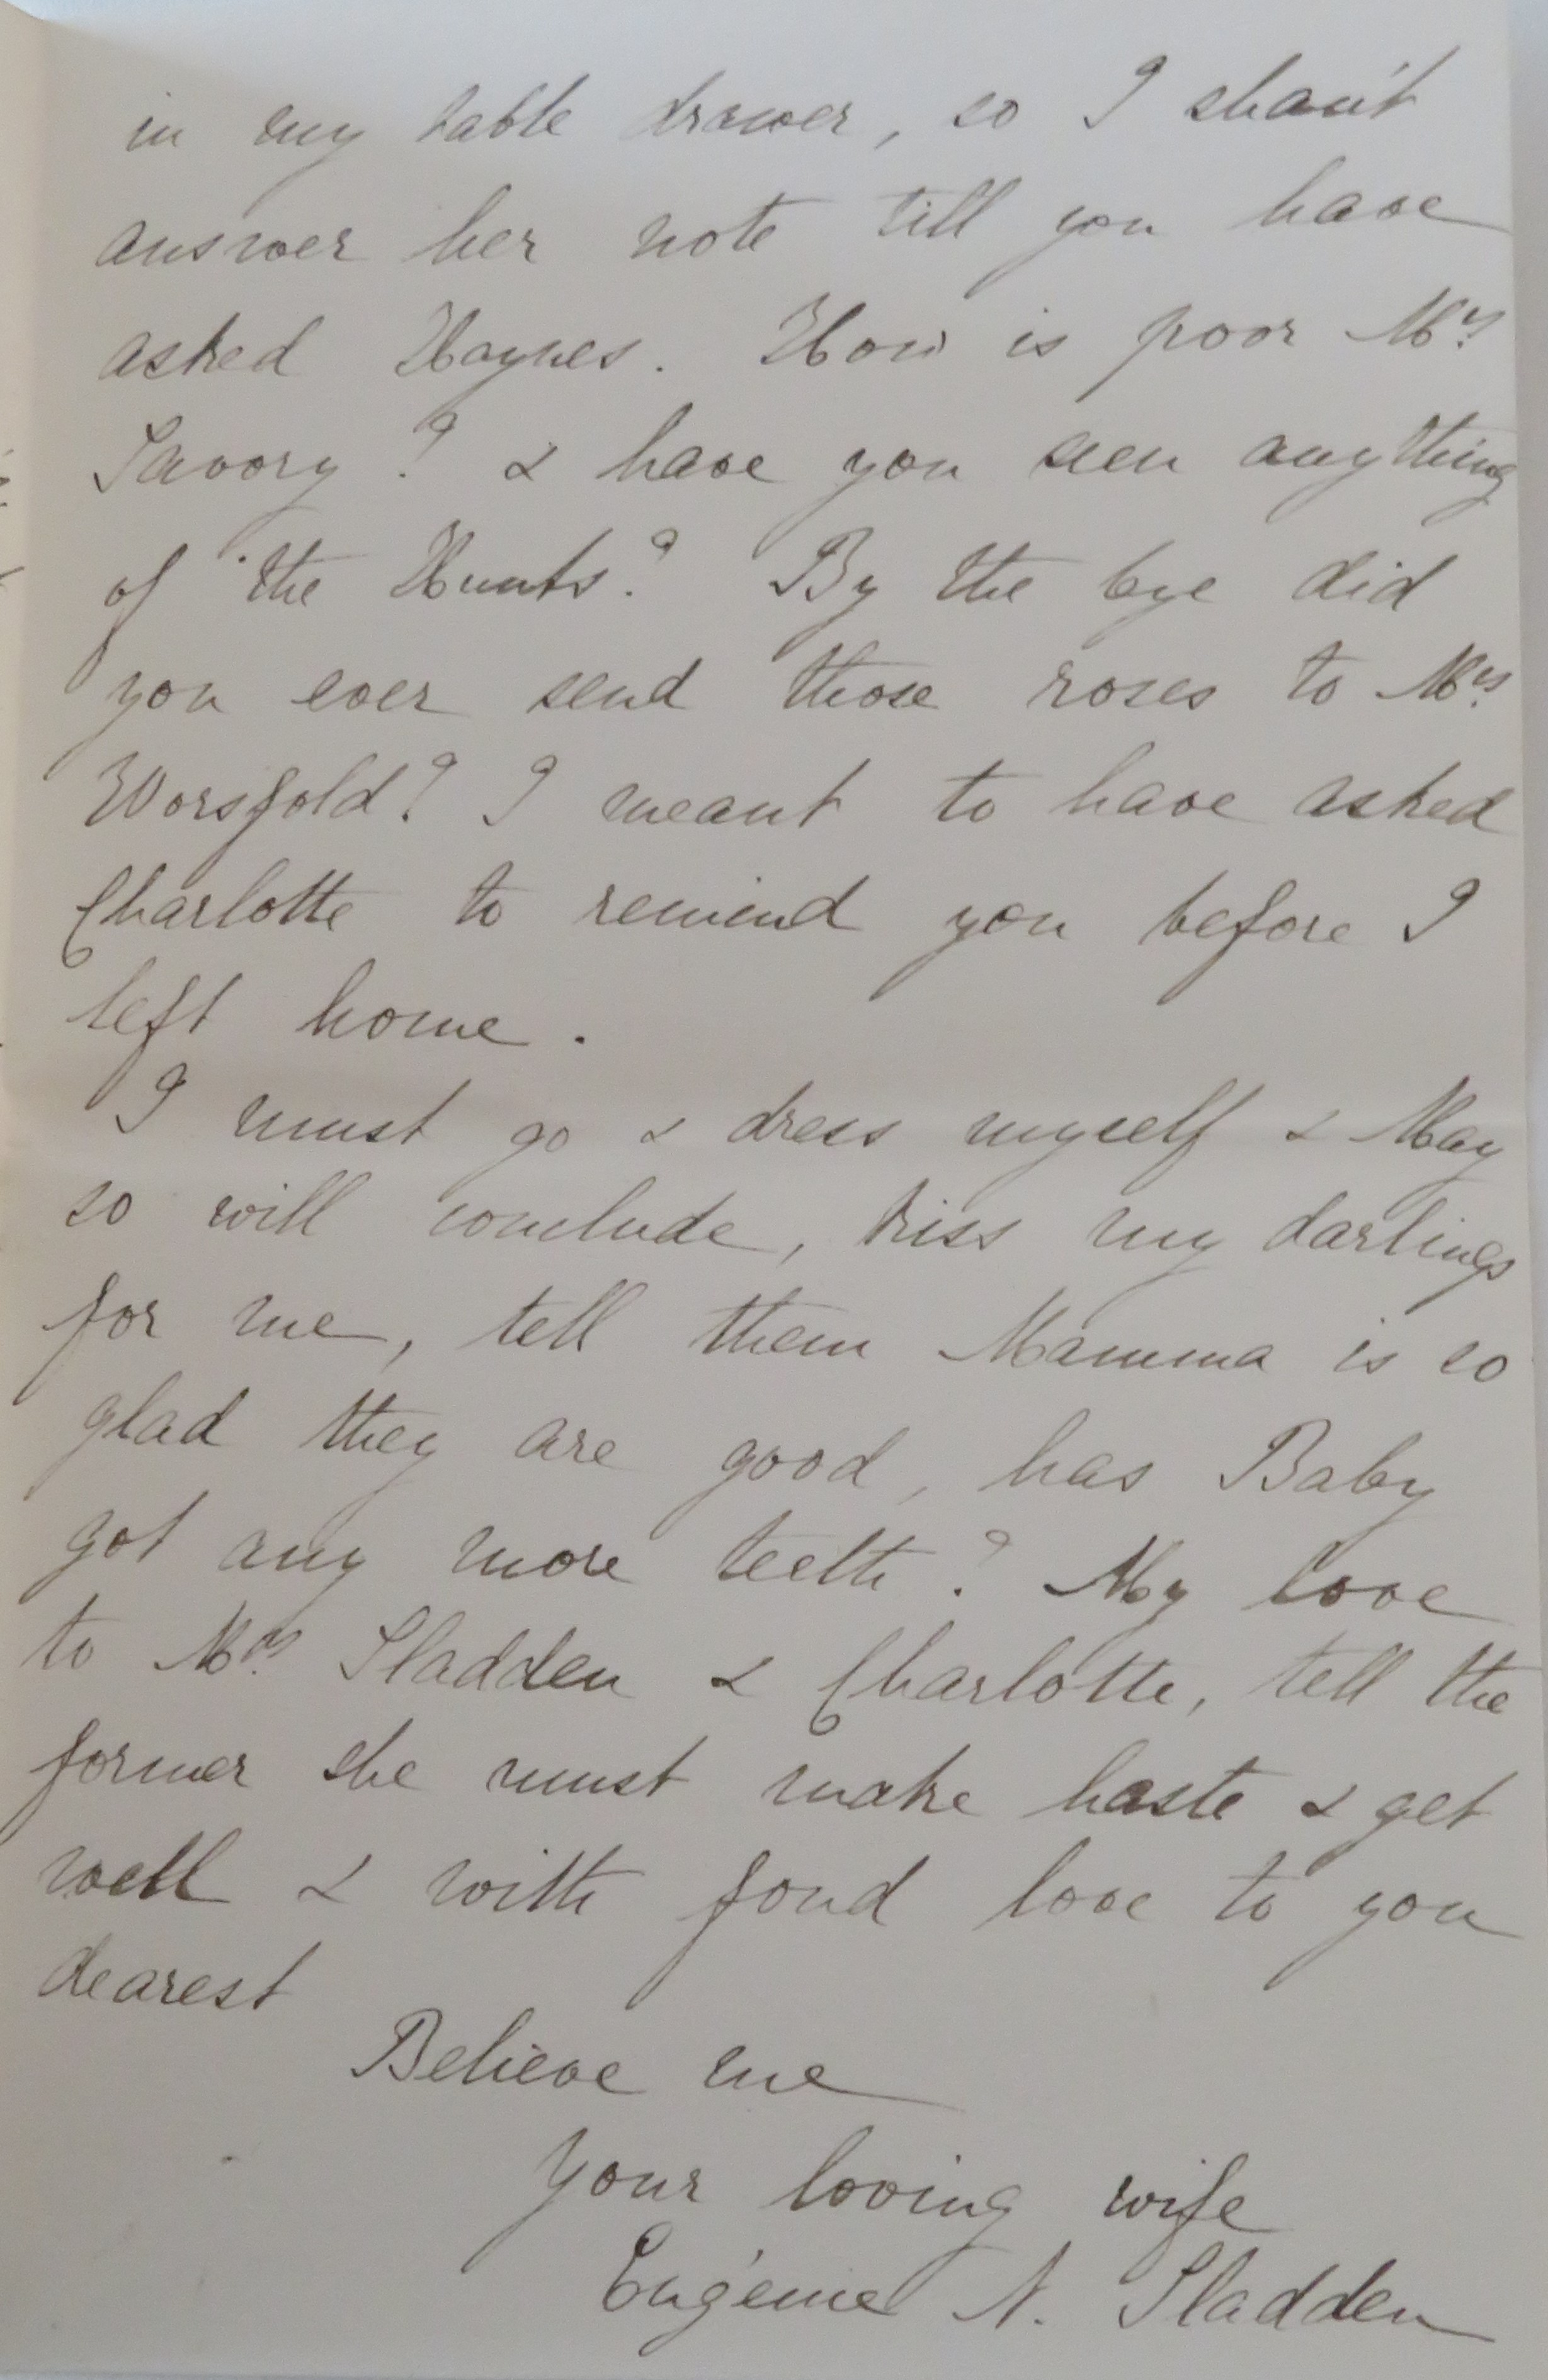 in my table drawer, so I shan't
answer her note till you have
asked Haynes. How is poor Mrs.
Savory? & have you seen anything
of the Hunts? By the bye did
you ever send those roses to Mrs.
Worsfold? I meant to have asked
Charlotte to remind you before I
left home.
I must go & dress myself & May
so will conclude, kiss my darlings
for me, tell them Mamma is so
glad they are good, has Baby
got any more teeth? My love
to Mrs. Sladden & Charlotte, tell the
former she must make haste & get
well & with fond love to you
dearest
Believe me
Your loving wife
Eugénie N. Sladden